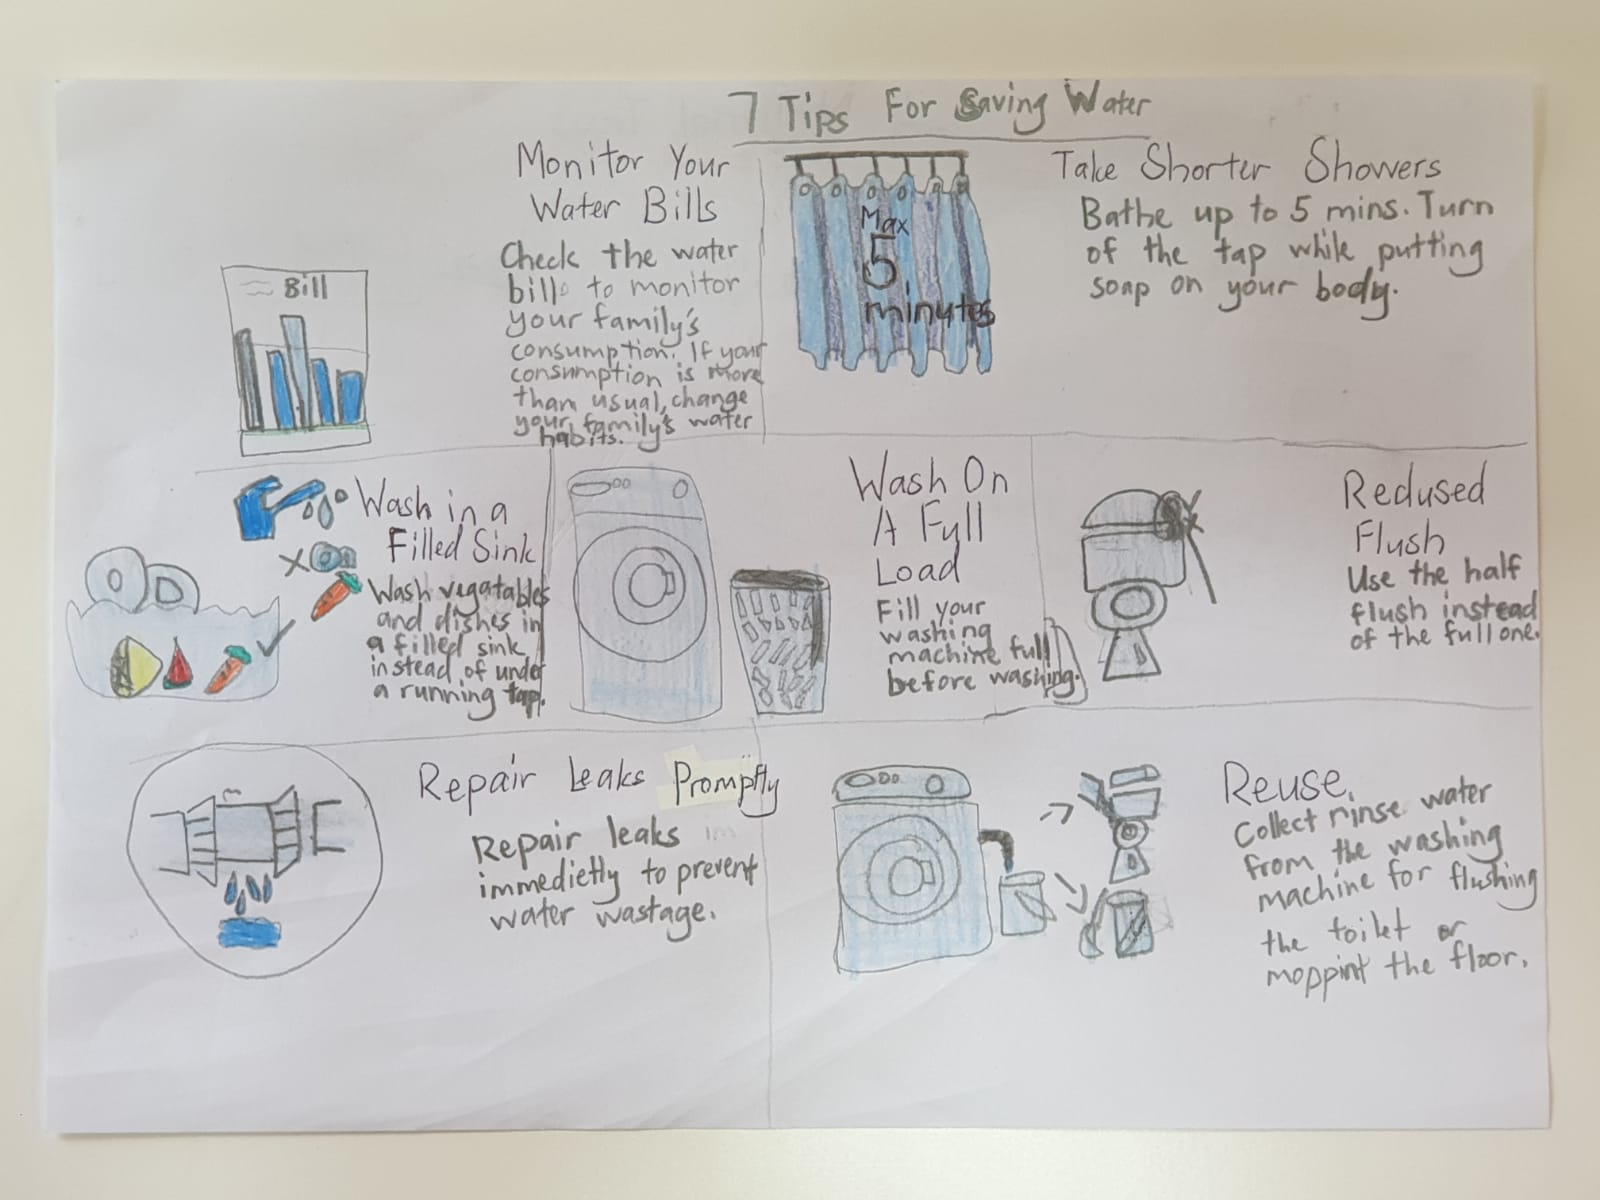 7 Tips For Saving Water
Monitor Your
Water Bills
Check the water
bills to monitor
your family's
consumption. If your
consumption is more
than usual, change
your family's water
habits.
Bill
Max
5
minutes
Take Shorter Showers
Bathe up to 5 mins. Turn
of the tap while putting
soap on your body.
Wash in a
Filled Sink
Wash vegatables
and dishes in
a filled sink
instead of under
a running tap.
Wash On
A Full
Load
Fill your
washing
machine full
before washing.
Redused
Flush
Use the half
flush instead
of the full one.
Repair Leaks Promptly
Repair leaks
immedietly to prevent
water wastage.
Reuse
Collect rinse water
from the washing
machine for flushing
the toilet or
moppint the floor.